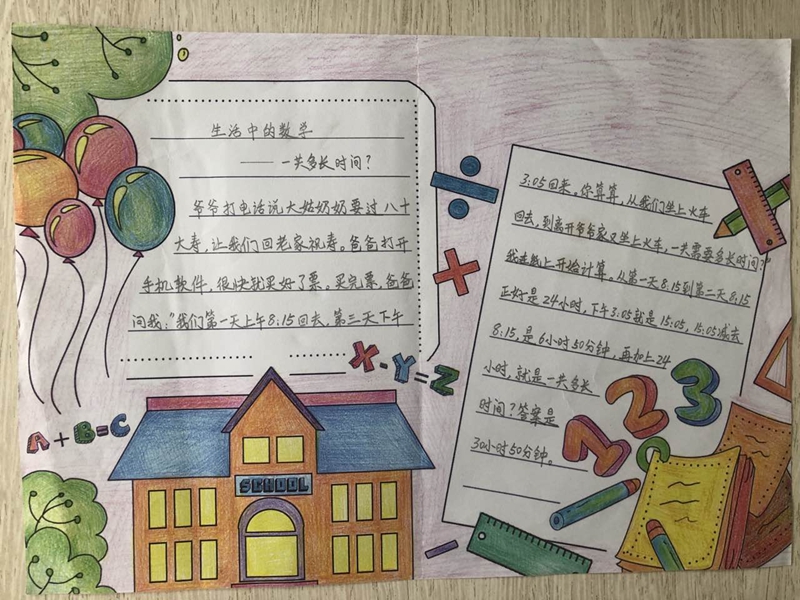 生活中的数学
——一共多长时间？
爷爷打电话说大姑奶奶要过八十
大寿，让我们回老家祝寿。爸爸打开
手机软件，很快就买好了票。买完票，爸爸
问我：“我们第一天上午8:15回去，第三天下午
3:05回来。你算算，从我们坐上火车
回去，到离开爷爷家又坐上火车，一共需要多长时间？
我在纸上开始计算。从第一天8:15到第二天8:15
正好是24小时，下午3:05就是15:05，15:05减去
8:15，是6小时50分钟，再加上24
小时，就是一共多长
时间？答案是
30小时50分钟。
÷
+
X-Y=Z
A+B=C
SCHOOL
123